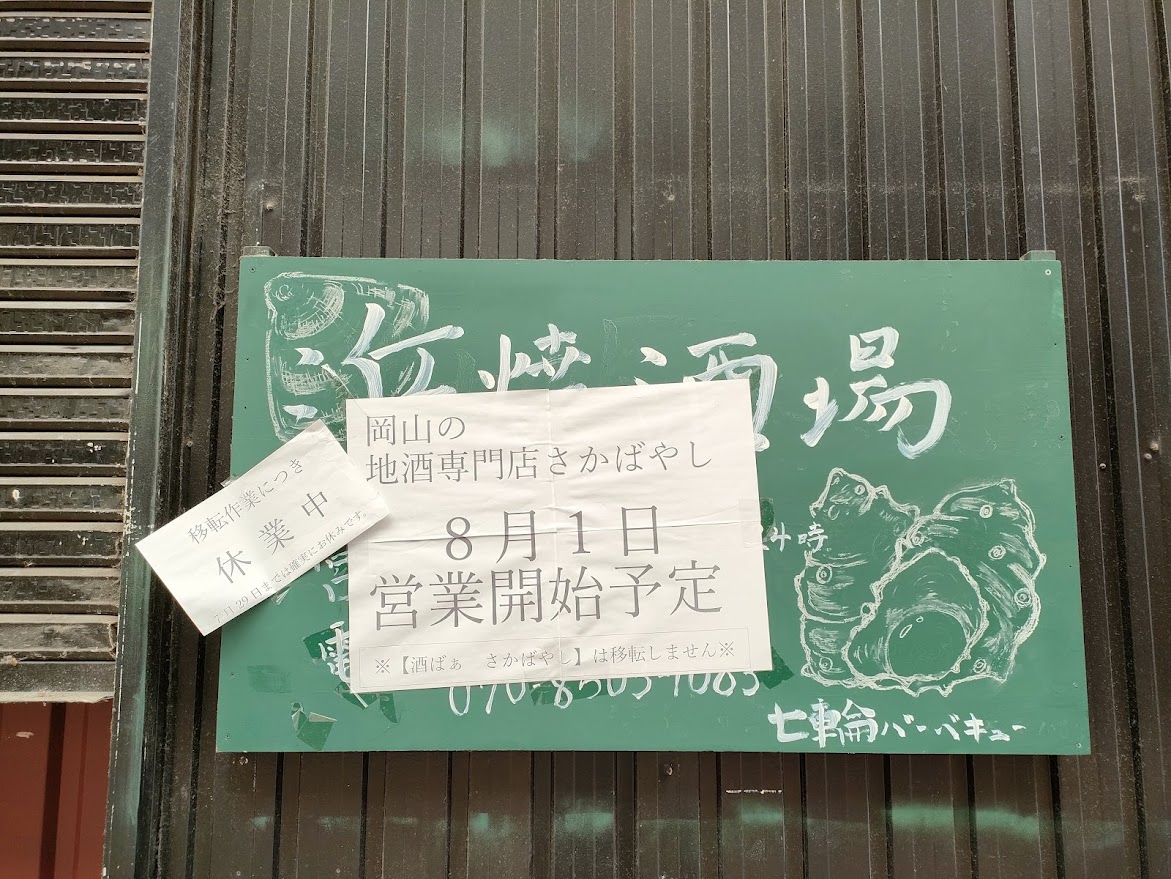 浜焼酒場
岡山の
地酒専門店さかばやし
8月1日
営業開始予定
※【酒ばぁ さかばやし】は移転しません※
移転作業につき
休業中
7月29日までは確実にお休みです。
時
七輪バーベキュー